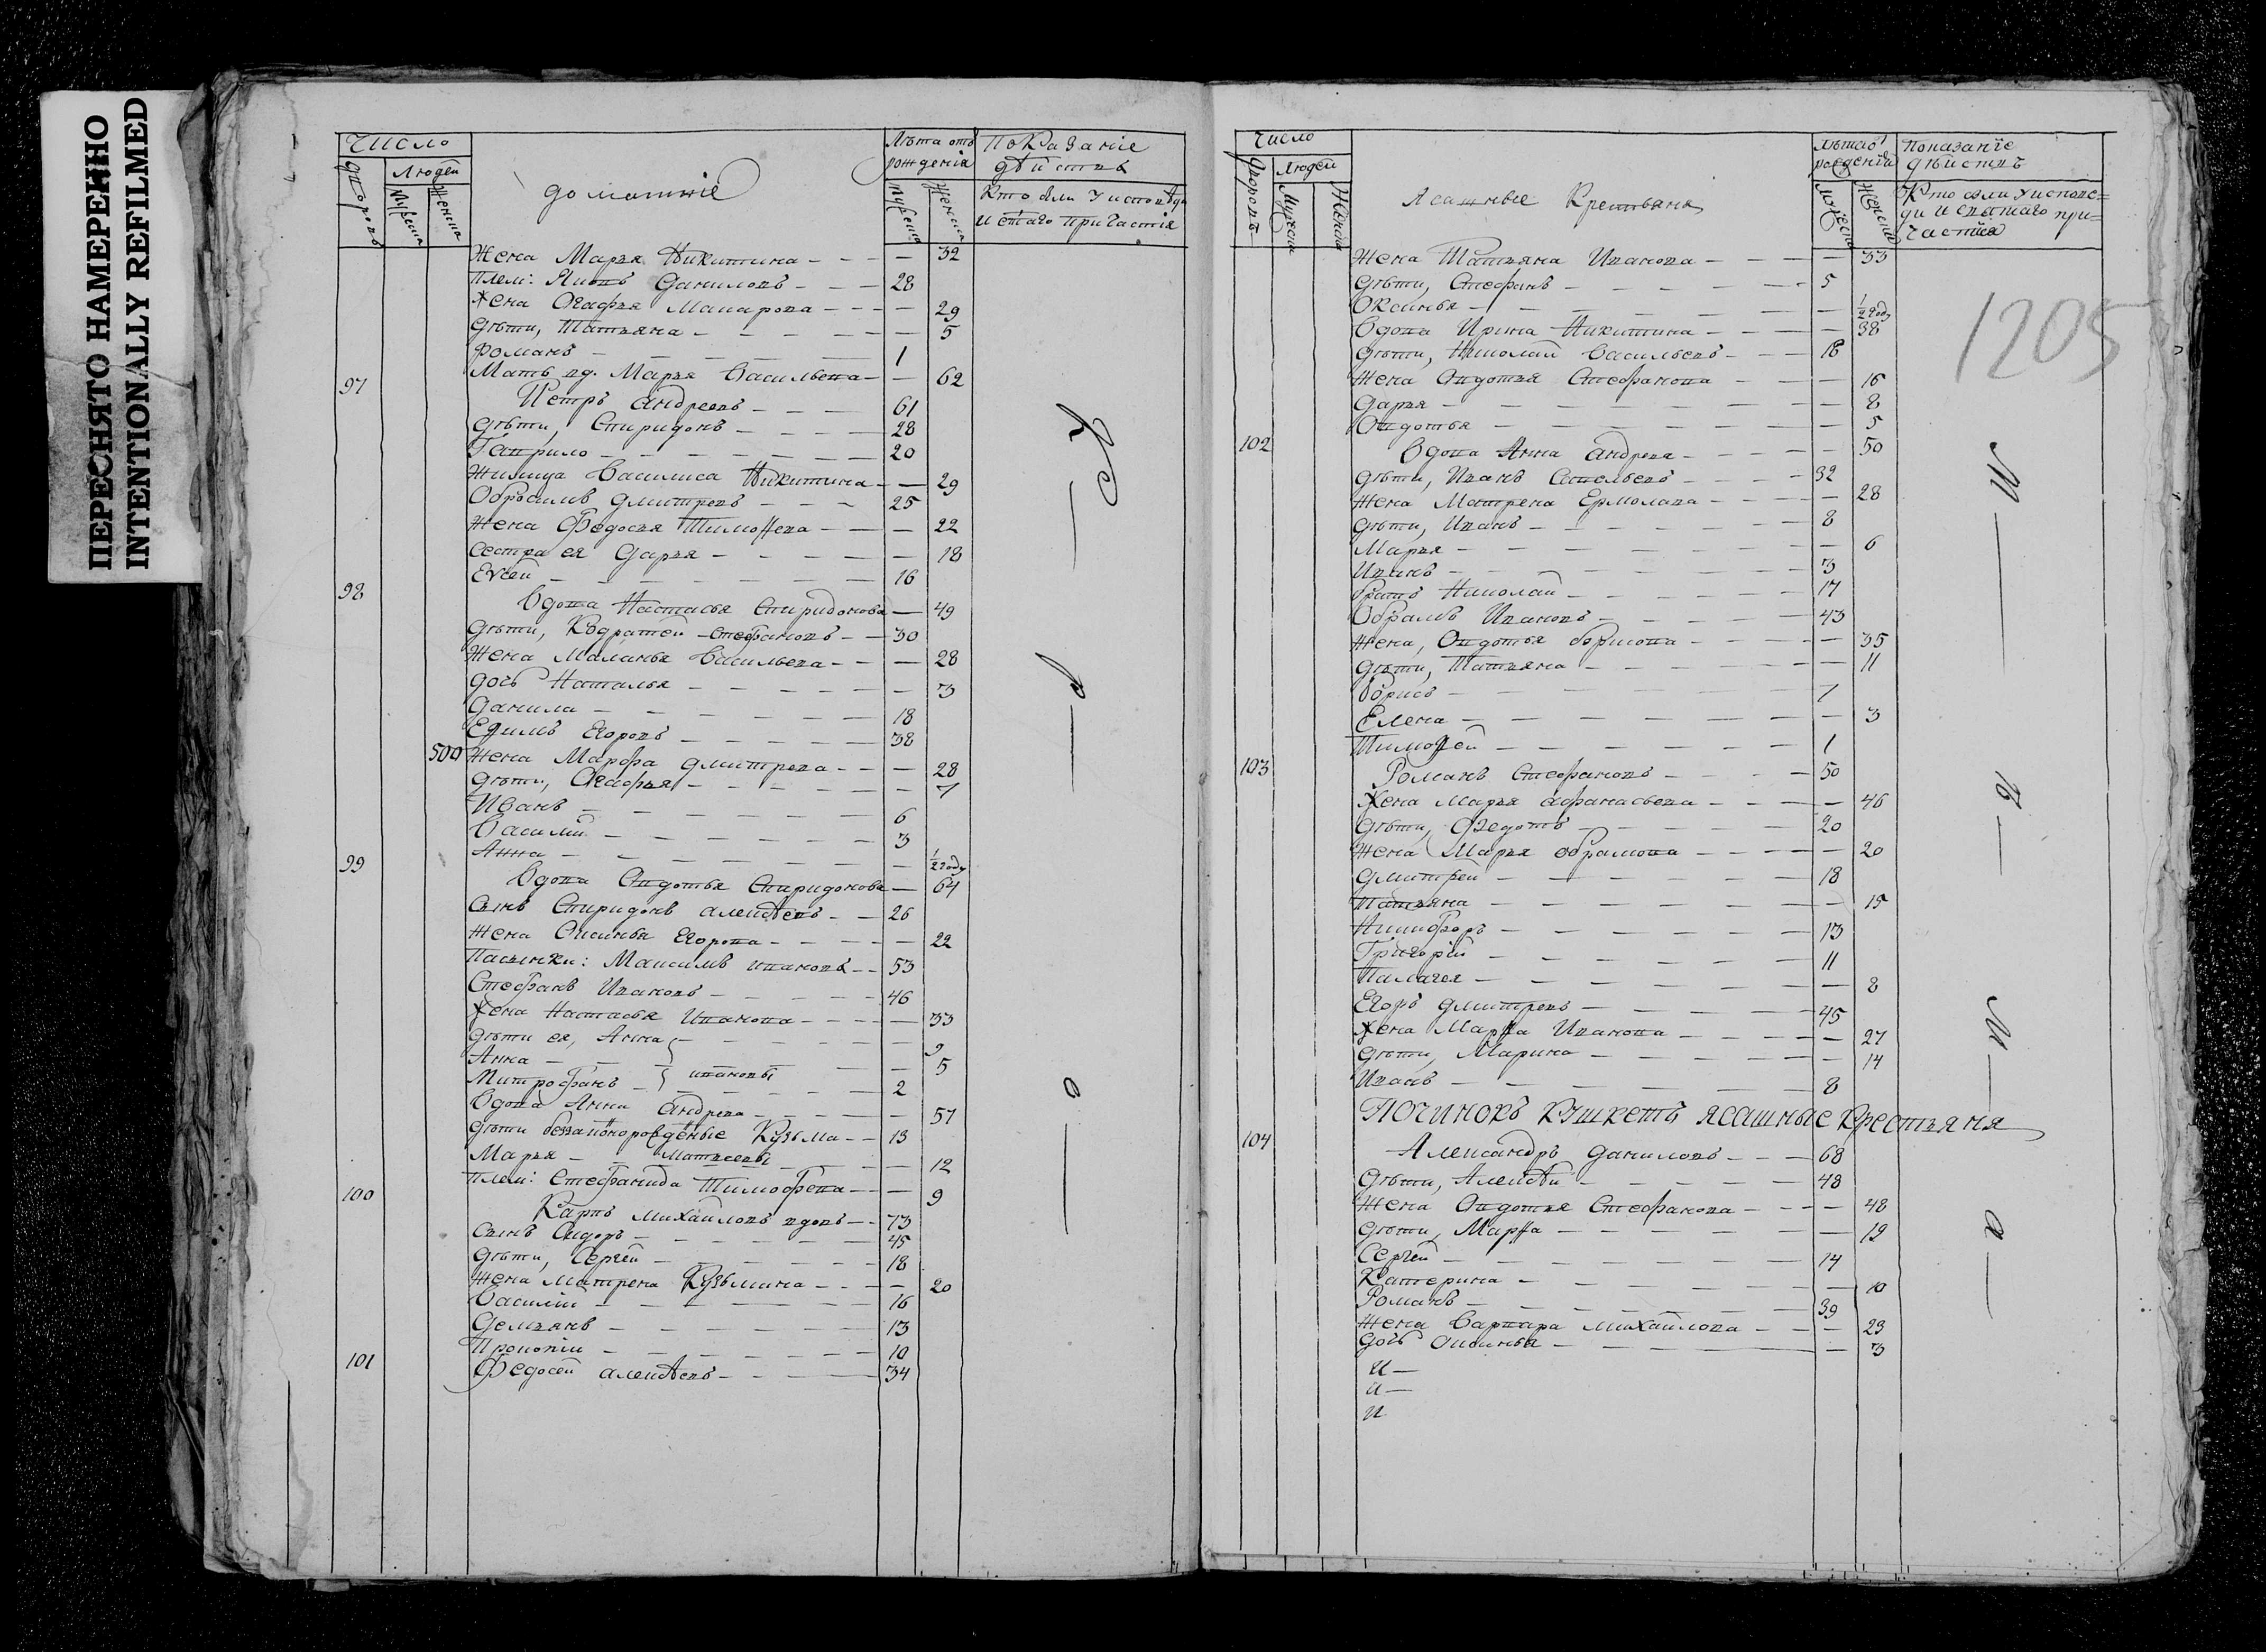 ПЕРЕСНЯТО НАМЕРЕННО
INTENTIONALLY REFILMED
Число
дворовъ
Людей
Мужеска
Женска
домашніе
Лѣта отъ рожденія
Мужеска
Женска
Показаніе дѣйствъ
Кто были у исповѣди
и с�таго причастія
Жена Марья Никитина - - - — 32
Плем: Яковъ Даниловъ - - - 28
Жена Огафья Макарова - - - — 29
Дѣти, Татьяна - - - — 5
Романъ - - - 1
Мать вд. Марья Васильева — — 62
97
Петръ Андреевъ - - - 61
Дѣти, Спиридонъ - - - 28
Гаврило - - - 20
Жилица Василиса Никитина - — 29
Обросимъ Дмитревъ - - - 25
Жена Федосья Тимоѳева - — 22
Сестра ея Дарья - - - — 18
Евсей - - - 16
98
Вдова Настасья Спиридонова — 49
Дѣти, Кодратей Стефановъ - - 30
Жена Маланья Васильева - - — 28
Дочь Наталья - - - — 3
Данила - - - 18
Едимъ Егоровъ - - - 38
500 Жена Марфа Дмитрева - - - — 28
Дѣти, Огафья - - - — 7
Иванъ - - - 6
Василий - - - 3
Анна - - - — 1/2 году
99
Вдова Овдотья Спиридонова — 64
Сынъ Спиридонъ Алексѣевъ - - 26
Жена Оксинья Егорова - - - — 22
Пасынки: Максимъ Ивановъ - - 53
Стефанъ Ивановъ - - - 46
Жена Настасья Иванова - - - — 33
Дѣти ея, Анна - - - — 9
Анна - - - — 5
Митрофанъ - } Ивановы 2
Вдова Анна Андрева - - - — 57
Дѣти беззаконорожденые Кузьма - - 13
Марья - Матвеевы — 12
Плем: Стефанида Тимофева - - — 9
100
Карпъ Михайловъ вдовъ - - 73
Сынъ Сидоръ - - - 45
Дѣти, Сергей - - - 18
Жена Матрена Кузьмина - - - — 20
Василій - - - 16
Демьянъ - - - 13
Прокопій - - - 10
101
Федосей Алексѣевъ - - - 34
Число
Дворовъ
Людей
Мужеска
Женска
Ясашные Крестьяня
Лѣта о рожденія
Мужеска
Женска
Показаніе дѣйствъ
Кто были у исповѣ=
ди и святаго при=
частія
1205
Жена Татьяна Иванова - - - — 33
Дѣти, Стефанъ - - - 5
Оксинья - - - — 1/2 году
Вдова Ирина Никитина - - - — 38
Дѣти, Николай Васильевъ - - - 18
Жена Овдотья Стефанова - - — 16
Дарья - - - — 8
Овдотья - - - — 5
102
Вдова Анна Андрева - - - — 50
Дѣти, Иванъ Савельевъ - - - 32
Жена Матрена Ермолава - - - — 28
Дѣти, Иванъ - - - 8
Марья - - - — 6
Иванъ - - - 3
братъ Николай - - - 17
Обрамъ Ивановъ - - - 43
Жена, Овдотья борисова - - - — 35
Дѣти, Татьяна - - - — 11
Борисъ - - - 7
Елена - - - — 3
Тимоѳей - - - 1
103
Романъ Стефановъ - - - 50
Жена Марья Афанасьева - - - — 46
Дѣти, Федотъ - - - 20
Жена Марья обрамова - - - — 20
Дмитрей - - - 18
Татьяна - - - — 15
Никифоръ - - - 13
Григорій - - - 11
Палагея - - - — 8
Егоръ Дмитревъ - - - 45
Жена Марѳа Иванова - - - — 27
Дѣти, Марина - - - — 14
Иванъ - - - 8
Починокъ Кушкетъ ясашные Крестьяня
104
Александръ Даниловъ - - - 68
Дѣти, Алексѣй - - - 48
Жена Овдотья Стефанова - - - — 48
Дѣти, Марѳа - - - — 19
Сергей - - - 14
Катерина - - - — 10
Романъ - - - 39
Жена Варвара Михайлова - - — 29
Дочь Оксинья - - - — 3
И —
И —
И